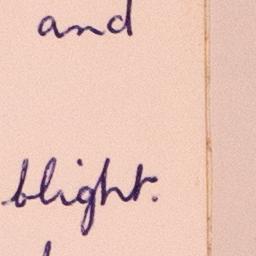 and
blight.